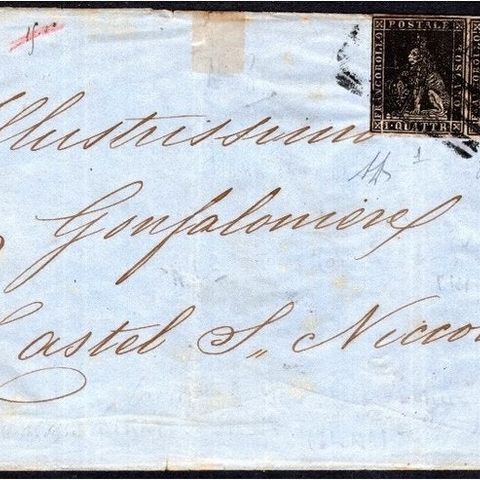 POSTALE
FRANCOBOLLO
TOSCANO
1 QUATTR
Illustrissimo
Gonfaloniere
Castel S,, Niccol